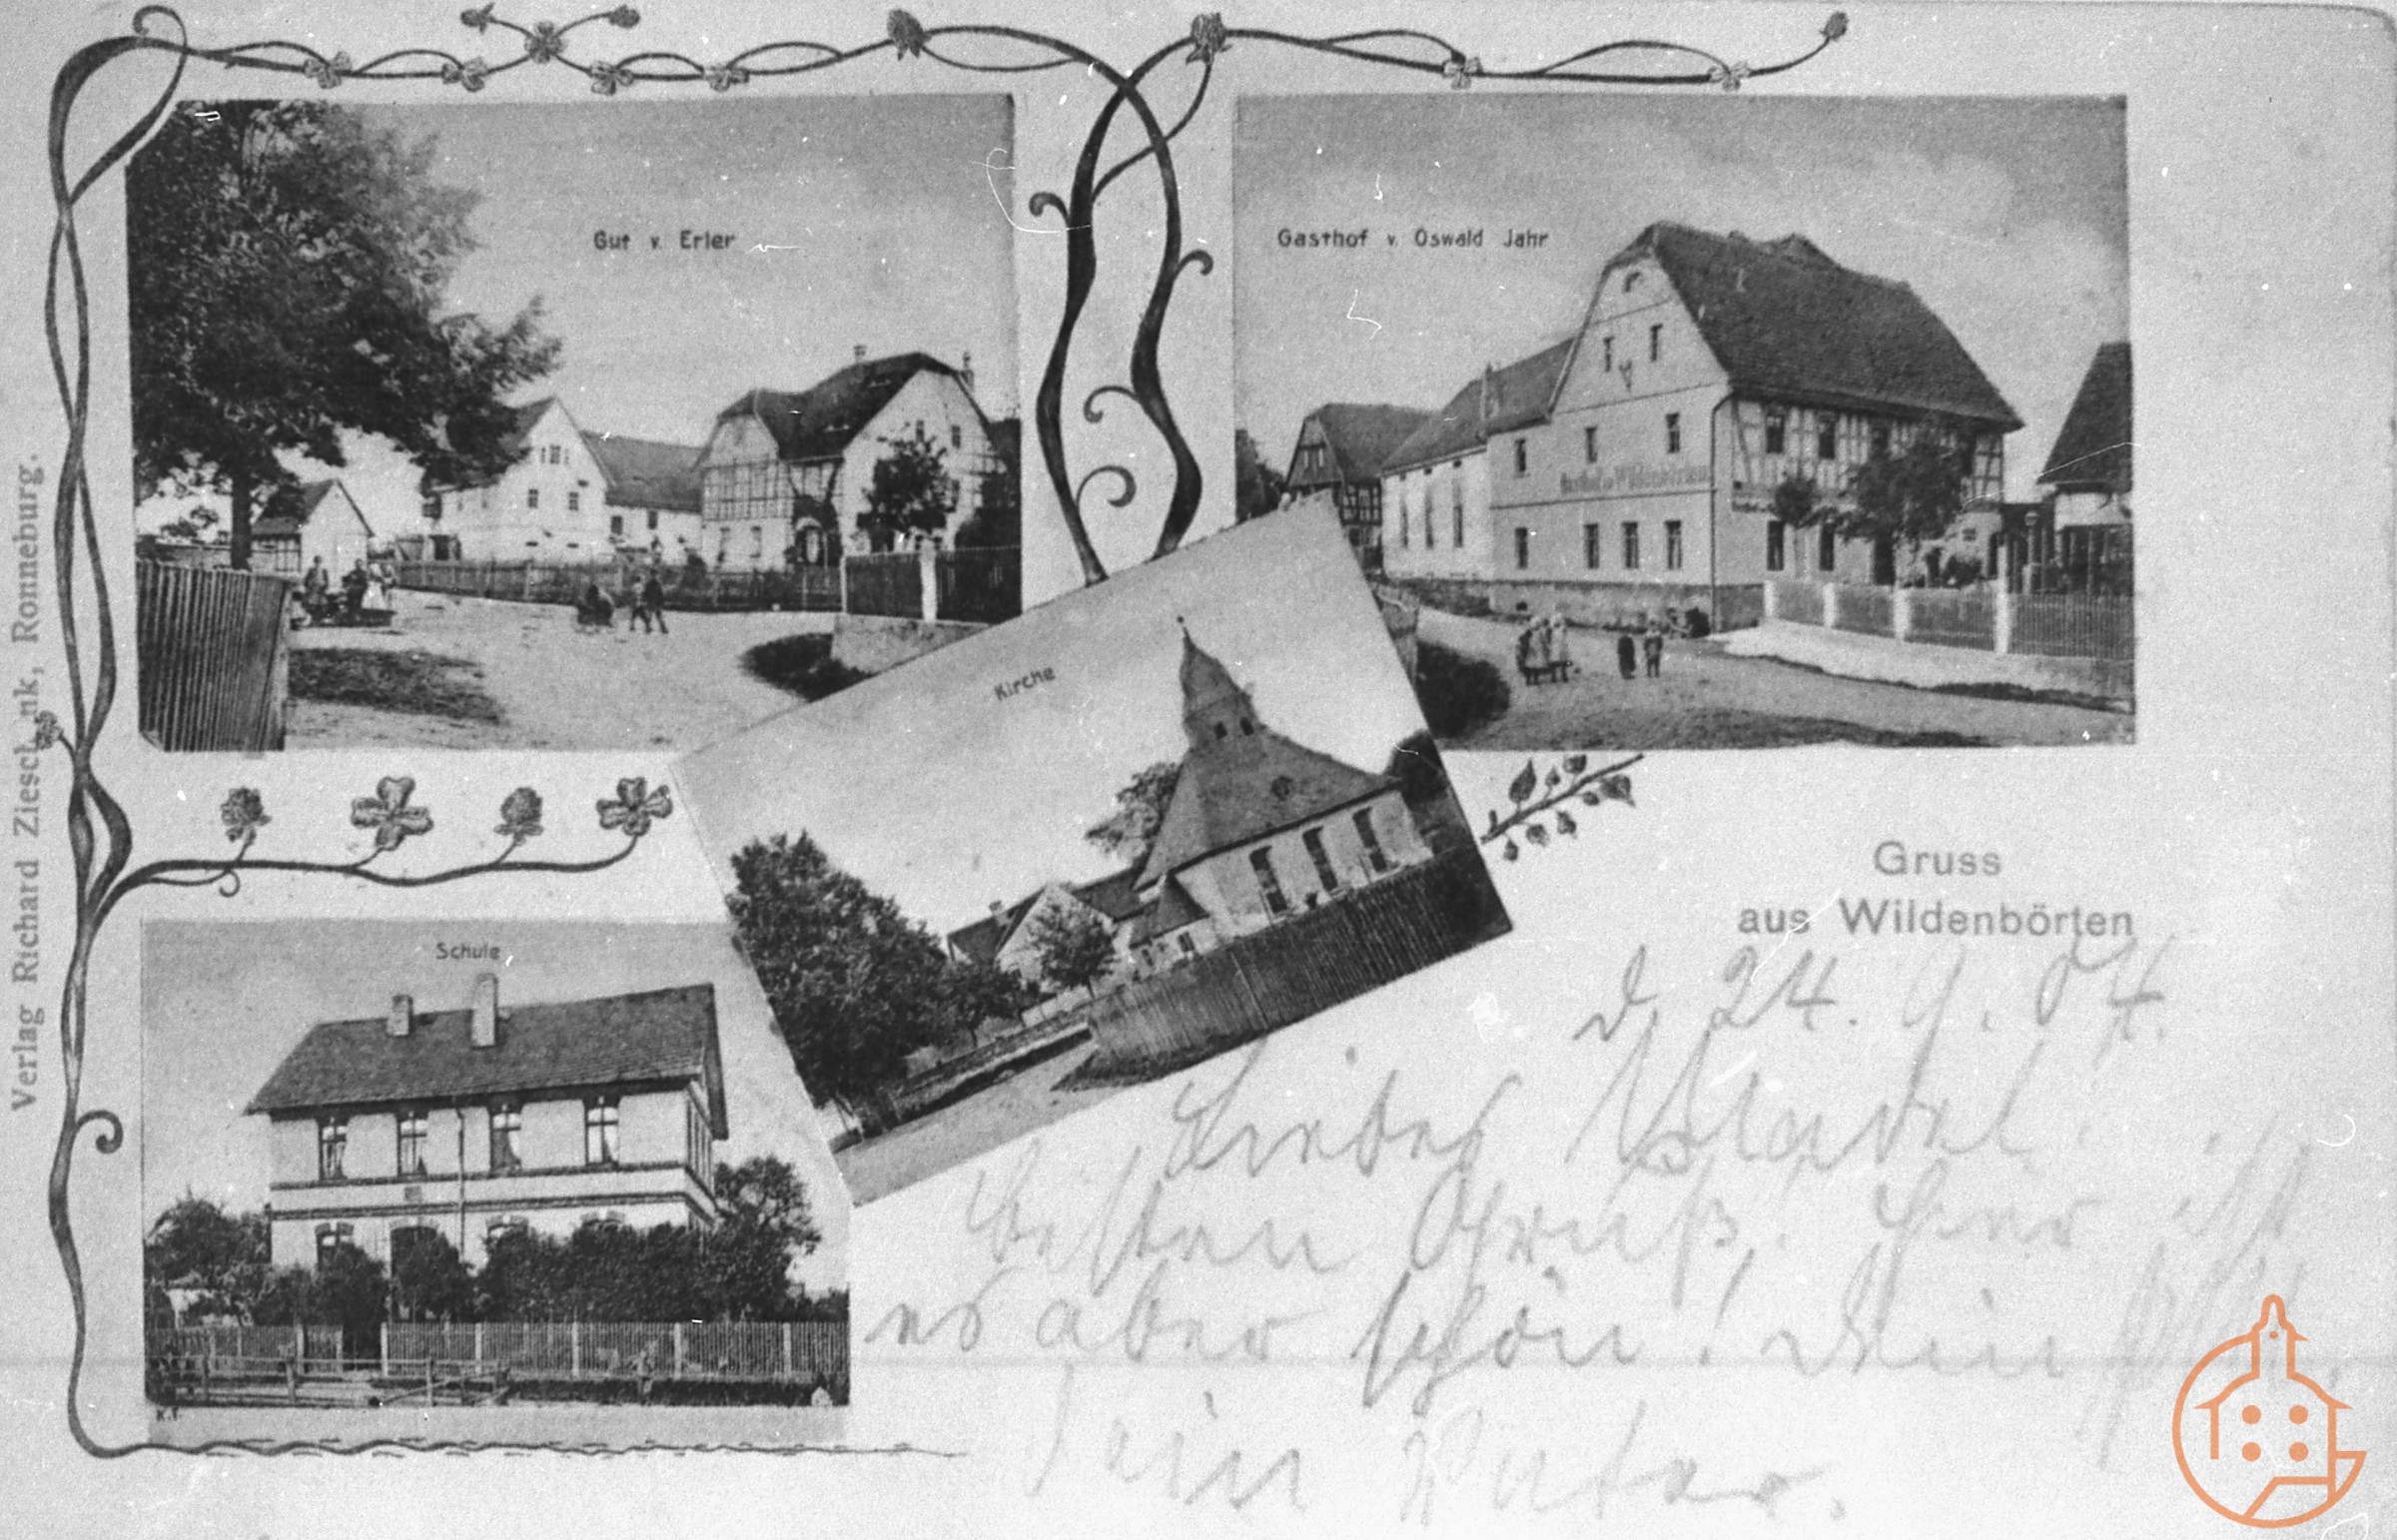 Gut v. Erler
Gasthof v. Oswald Jahr
Gasthof zu Wildenbörten
Kirche
Schule
K.F.
Verlag Richard Ziesch nk, Ronneburg.
Gruss
aus Wildenbörten
d. 24. 9. 04.
Liebes Mädel!
besten Gruß! Hier ist
es aber schön! Dein
Dein Vater.